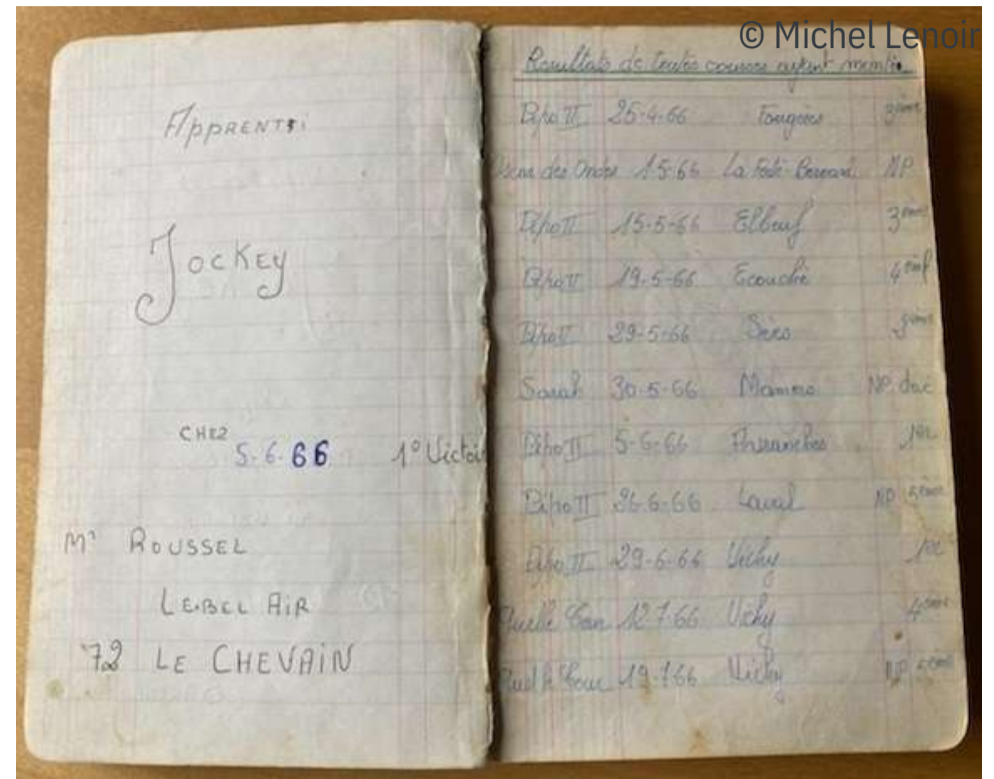 © Michel Lenoir
APPRENTi
JOCKEY
CHEZ
5.6.66 1° Victoi
Mr ROUSSEL
LEBEL AIR
72 LE CHEVAIN
Résultats de toutes courses ayant
Bipo II 25-4-66 Fougères 3ème
des Ondes 1-5-66 La Ferté-Bernard NP
Bipo II 15-5-66 Elbeuf 3ème
Bipo II 19-5-66 Ecouché 4ème
Bipo II 29-5-66
Sarah 30-5-66 Mamers NP
Bipo II 5-6-66 1er
Bipo II 26-6-66 Laval NP 5ème
Bipo II 29-6-66 Vichy 1er
12-7-66 Vichy 4ème
19-7-66 Vichy NP 5ème